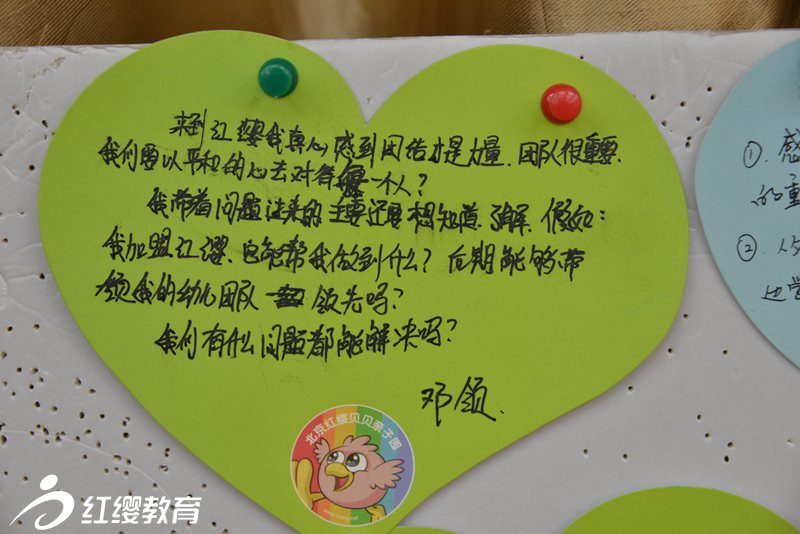 来到红缨我真心感到团结才是力量.团队很重要.
我们要以平和的心去对待每一个人?
我带着问题过来的 主要还要想知道.了解.假如:
我加盟红缨.它能帮我做到什么?后期能够带
领我的幼儿团队 领先吗?
我们有什么问题都能解决吗?
邓领.
北京红缨贝贝亲子园
红缨教育
①.感
的重
②.